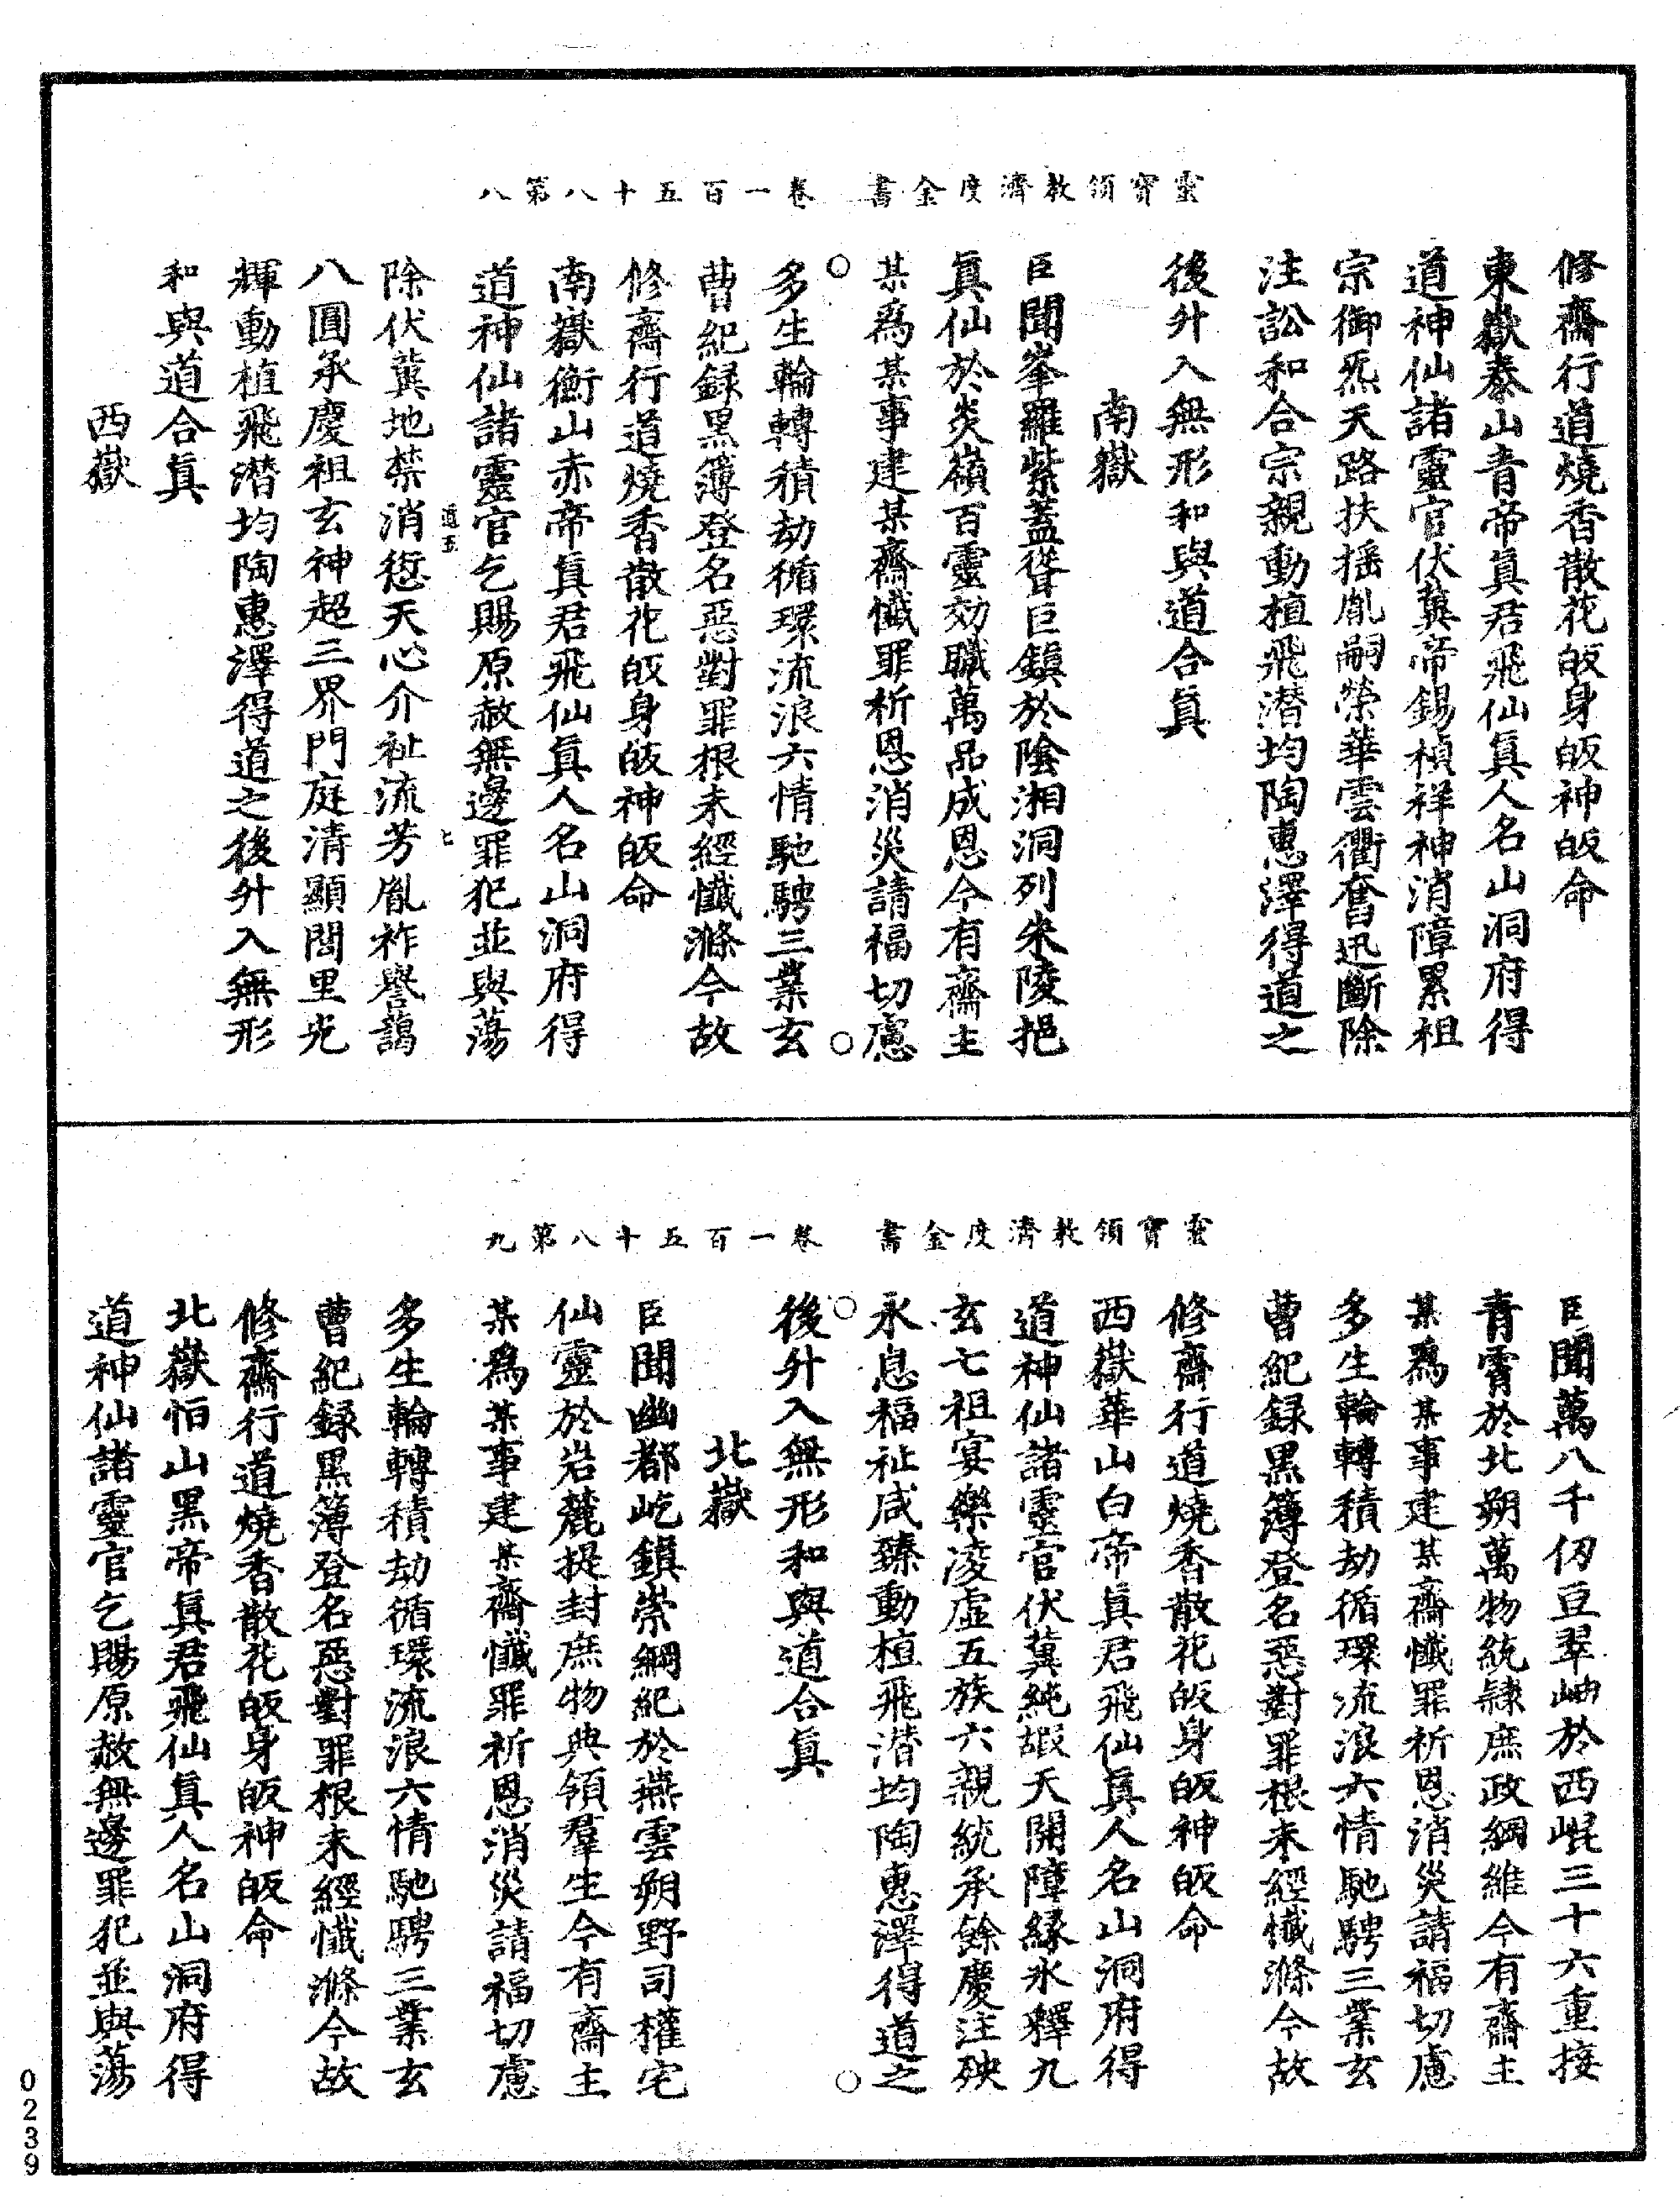 靈寳領教濟度金書　卷一百五十八第八
修齋行道燒香散花皈身皈神皈命
東嶽泰山青帝真君飛仙真人名山洞府得
道神仙諸靈官伏冀帝錫楨祥神消障累祖
宗御炁天路扶揺胤嗣榮華雲衢奮迅斷除
注訟和合宗親動植飛潛均陶惠澤得道之
後升入無形和與道合真
南嶽
臣聞峯羅紫蓋聳巨鎮於陰湘洞列朱陵挹
真仙於炎嶺百靈効職萬品成恩今有齋主
某爲某事建某齋懺罪祈恩消災請福切慮
多生輪轉積劫循環流浪六情馳騁三業玄
曹紀録黑簿登名惡對罪根未經懺滌今故
修齋行道燒香散花皈身皈神皈命
南嶽衡山赤帝真君飛仙真人名山洞府得
道神仙諸靈官乞賜原赦無邊罪犯並與蕩
道五　七
除伏冀地禁消愆天心介祉流芳胤祚譽藹
八圓承慶祖玄神超三界門庭清顯閭里光
輝動植飛潛均陶惠澤得道之後升入無形
和與道合真
西嶽
靈寳領教濟度金書　卷一百五十八第九
臣聞萬八千仞豆翠岫於西崐三十六重接
青霄於北朔萬物統隸庶政綱維今有齋主
某爲某事建某齋懺罪祈恩消災請福切慮
多生輪轉積劫循環流浪六情馳騁三業玄
曹紀録黑簿登名惡對罪根未經懺滌今故
修齋行道燒香散花皈身皈神皈命
西嶽華山白帝真君飛仙真人名山洞府得
道神仙諸靈官伏冀純嘏天開障縁氷釋九
玄七祖宴樂淩虛五族六親統承餘慶注殃
永息福祉咸臻動植飛潛均陶惠澤得道之
後升入無形和與道合真
北嶽
臣聞幽都屹鎮崇綱紀於燕雲朔野司權宅
仙靈於岩麓提封庶物典領羣生今有齋主
某爲某事建某齋懺罪祈恩消災請福切慮
多生輪轉積劫循環流浪六情馳騁三業玄
曹紀録黑簿登名惡對罪根未經懺滌今故
修齋行道燒香散花皈身皈神皈命
北嶽怕山黑帝真君飛仙真人名山洞府得
道神仙諸靈官乞賜原赦無邊罪犯並與蕩
0239